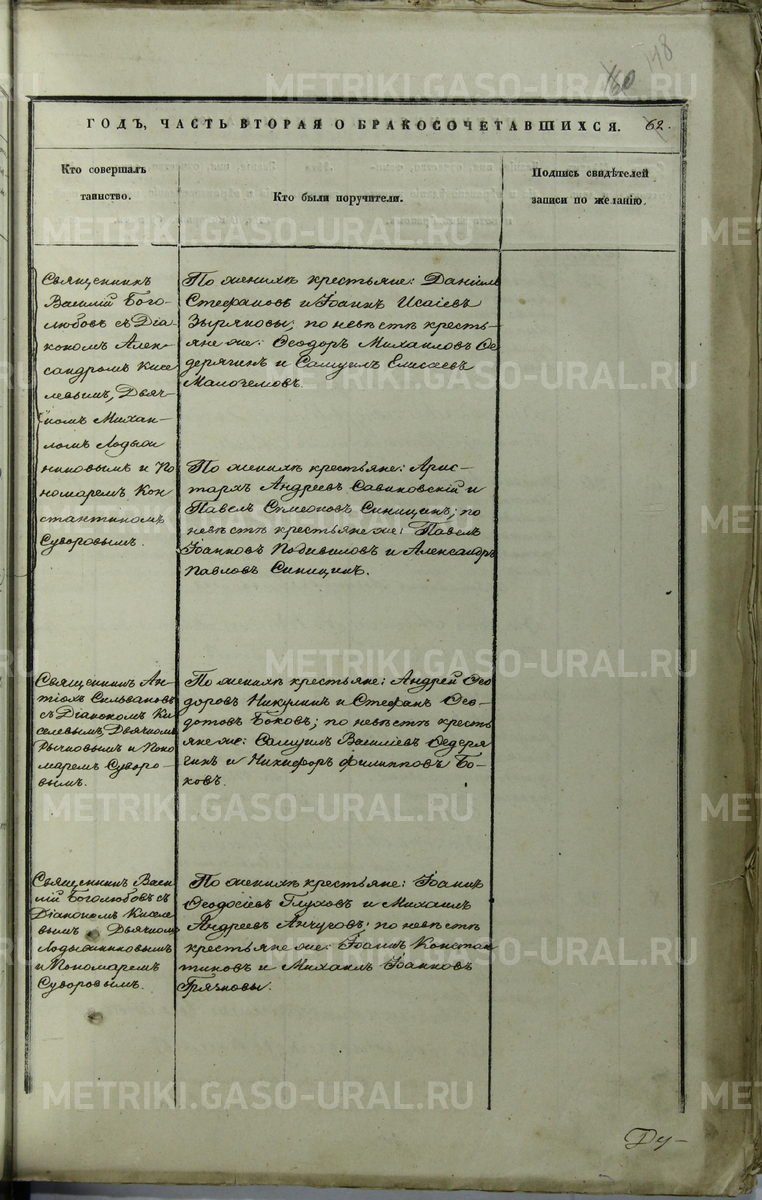 118
60
ГОДЪ, ЧАСТЬ ВТОРАЯ О БРАКОСОЧЕТАВШИХСЯ. 62.
Кто совершалъ
таинство.
Кто были поручители.
Подпись свидѣтелей
записи по желанію.
Священникъ
Василій Бого-
любовъ съ Діа-
кономъ Алек-
сандромъ Кисе
левымъ, Дьяч-
комъ Михаи-
ломъ Лодыж
никовымъ и По
номаремъ Кон
стантиномъ
Суворовымъ.
По женихѣ крестьяне: Даніилъ
Стефановъ и Іоаннъ Исаіевъ
Зыряновы; по невѣстѣ кресть-
яне же: Ѳеодоръ Михаиловъ Ѳе
дерягинъ и Самуилъ Елисѣевъ
Малоземовъ.
По женихѣ крестьяне: Арис-
тархъ Андреевъ Савиновскій и
Павелъ Симеоновъ Синицинъ; по
невѣстѣ крестьяне же: Павелъ
Іоанновъ Подивиловъ и Александръ
Павловъ Синицинъ.
Священникъ Ан-
тіохъ Сильвановъ
съ Діакономъ Ки-
селевымъ, Дьячкомъ
Рычковымъ и Поно
маремъ Суворо-
вымъ.
По женихѣ крестьяне: Андрей Ѳео
доровъ Никулинъ и Стефанъ Ѳео-
дотовъ Боковъ; по невѣстѣ кресть
яне же: Самуилъ Василіевъ Ѳедеря
гинъ и Никифоръ Филипповъ Бо-
ковъ.
Священникъ Васи
лій Боголюбовъ съ
Діакономъ Киселе
вымъ, Дьячкомъ
Лодыжниковымъ
и Пономаремъ
Суворовымъ.
По женихѣ крестьяне: Іоаннъ
Ѳеодосіевъ Глуховъ и Михаилъ
Андреевъ Анчуговъ; по невѣстѣ
крестьяне же: Іоаннъ Констан
тиновъ и Михаилъ Іоанновъ
Грязновы.
METRIKI.GASO-URAL.RU